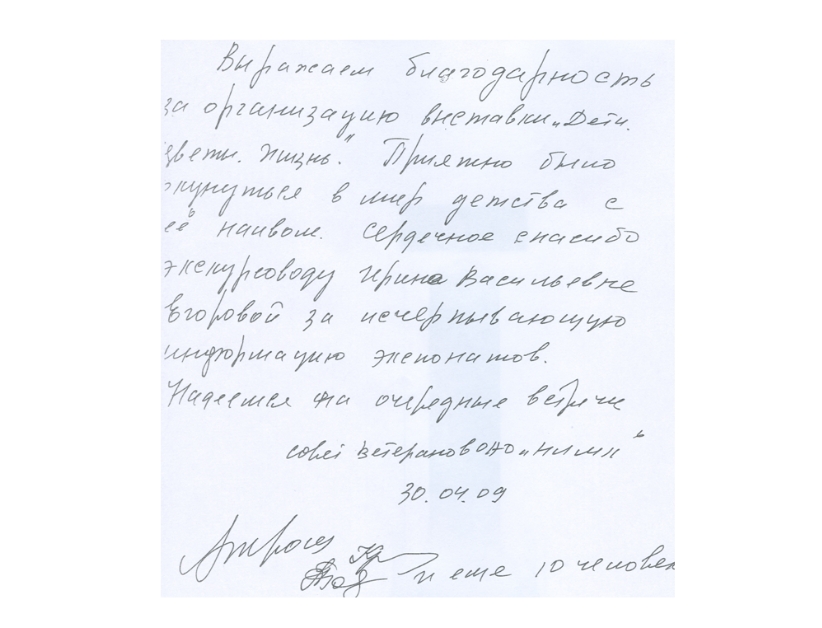 Выражаем благодарность
за организацию выставки „Дети.
Цветы. Жизнь." Приятно было
окунуться в мир детства с
её наивом. Сердечное спасибо
экскурсоводу Ирине Васильевне
Егоровой за исчерпывающую
информацию экспонатов.
Надеемся на очередные встречи
совет ветеранов ОАО „НИМИ"
30.04.09
и еще 10 человек